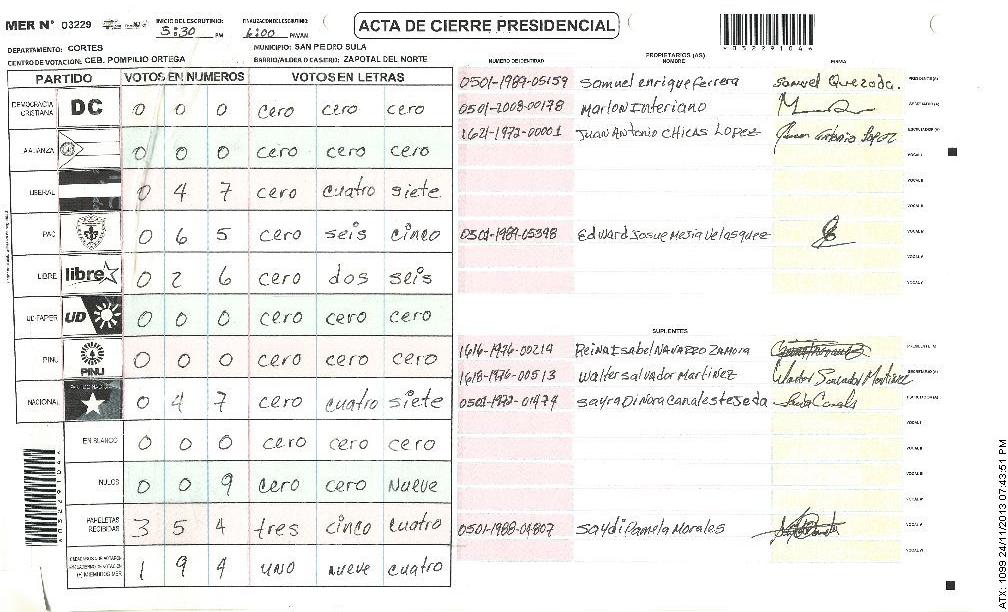 MER N° 03229
INICIO DEL ESCRUTINIO: 5:30 PM
FINALIZACION DEL ESCRUTINIO: 6:00 PM/AM
ACTA DE CIERRE PRESIDENCIAL
DEPARTAMENTO: CORTES
MUNICIPIO: SAN PEDRO SULA
CENTRO DE VOTACION: CEB. POMPILIO ORTEGA
BARRIO/ALDEA O CASERIO: ZAPOTAL DEL NORTE
PARTIDO VOTOS EN NUMEROS VOTOS EN LETRAS
DEMOCRACIA CRISTIANA DC 0 0 0 cero cero cero
ALIANZA 0 0 0 cero cero cero
LIBERAL 0 4 7 cero cuatro siete
PAC 0 6 5 cero seis cinco
LIBRE libre 0 2 6 cero dos seis
UD-FAPER UD 0 0 0 cero cero cero
PINU PINU 0 0 0 cero cero cero
NACIONAL 0 4 7 cero cuatro siete
EN BLANCO 0 0 0 cero cero cero
NULOS 0 0 9 cero cero nueve
PAPELETAS RECIBIDAS 3 5 4 tres cinco cuatro
1 9 4 uno nueve cuatro
PROPIETARIOS (AS)
NUMERO DE IDENTIDAD NOMBRE FIRMA
0501-1989-05159 Samuel enrique ferrera Samuel Quezada. PRESIDENTE(A)
0501-2008-00178 Marlon Interiano SECRETARIO(A)
1621-1972-00001 Juan Antonio Chicas Lopez ESCRUTADOR(A)
VOCAL I
VOCAL II
VOCAL III
0501-1989-05398 Edward Josue Mejia Velasquez VOCAL IV
VOCAL V
VOCAL VI
SUPLENTES
1616-1976-00219 Reina Isabel NAVARRO ZAMORA PRESIDENTE(A)
1618-1976-00513 Walter salvador Martinez SECRETARIO(A)
0501-1972-01474 sayra Dinora canales teseda ESCRUTADOR(A)
VOCAL I
VOCAL II
VOCAL III
VOCAL IV
0501-1988-04807 saydi Pamela Morales VOCAL V
VOCAL VI
ATX: 1099 24/11/2013 07:43:51 PM